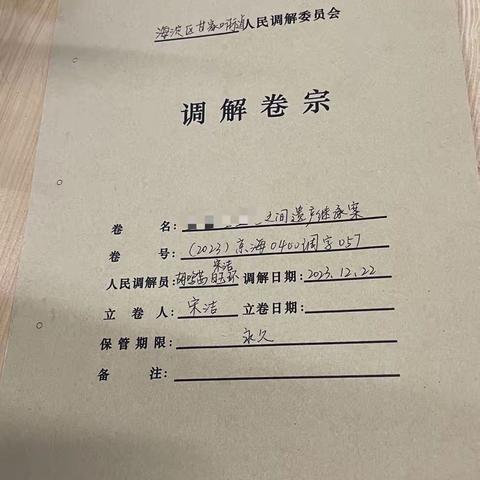 海淀区甘家口街道人民调解委员会
调解卷宗
卷 名: 之间遗产继承案
卷 号: (2023)京海0400调字057
宋洁
人民调解员: 调解日期: 2023.12.22
立 卷 人: 宋洁 立卷日期:
保管期限: 永久
备 注: